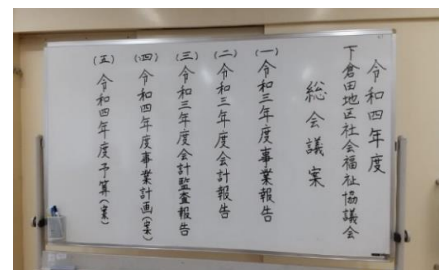 令和四年度
下倉田地区社会福祉協議会
総会議案
(一)令和三年度事業報告
(二)令和三年度会計報告
(三)令和三年度会計監査報告
(四)令和四年度事業計画(案)
(五)令和四年度予算(案)